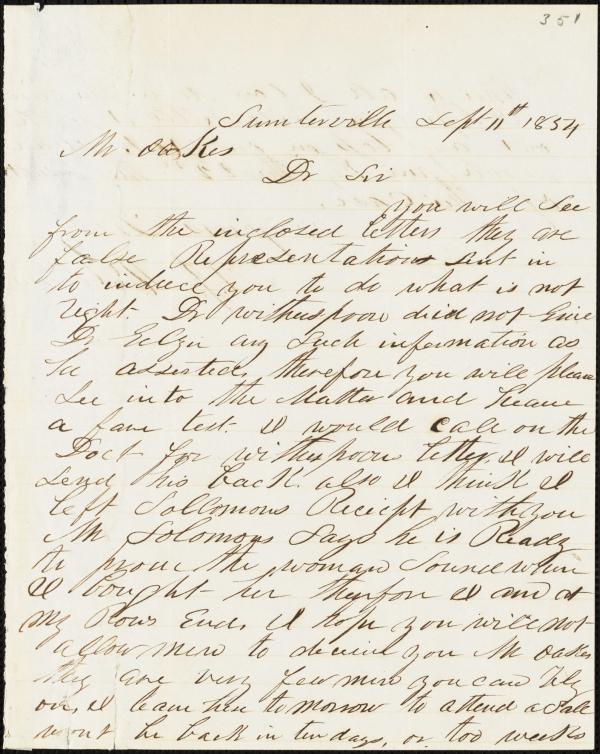 351
Sumterville Sept 11th 1854
Mr. Oakes
Dr Sir
you will see
from the inclosed letters they are
false Representations sent in
to induce you to do what is not
right. Dr witherspoon did not Give
Dr any such information as
he asserted, therefore you will please
See into the Matter and have
a fare test. I would call on the
Doct for witherspoon letter I will
Send his back. also I think I
left Sollomons Reciept with you
Mr Solomons Says he is Ready
to prove the woman Sound when
I bought her therfore I am at
my Rows End. I hope you will not
allow men to deceive you Mr Oakes
they are very few men you can Rely
on, I leave here tomorrow to attend a Sale
wont be back in ten days, or too weeks